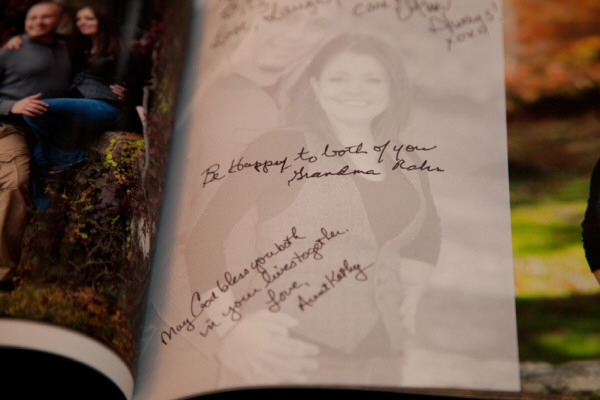 Love, Laughter
Always!
xoxo!
Be Happy to both of you
Grandma Rahn
May God bless you both
in your lives together.
Love,
Aunt Kathy